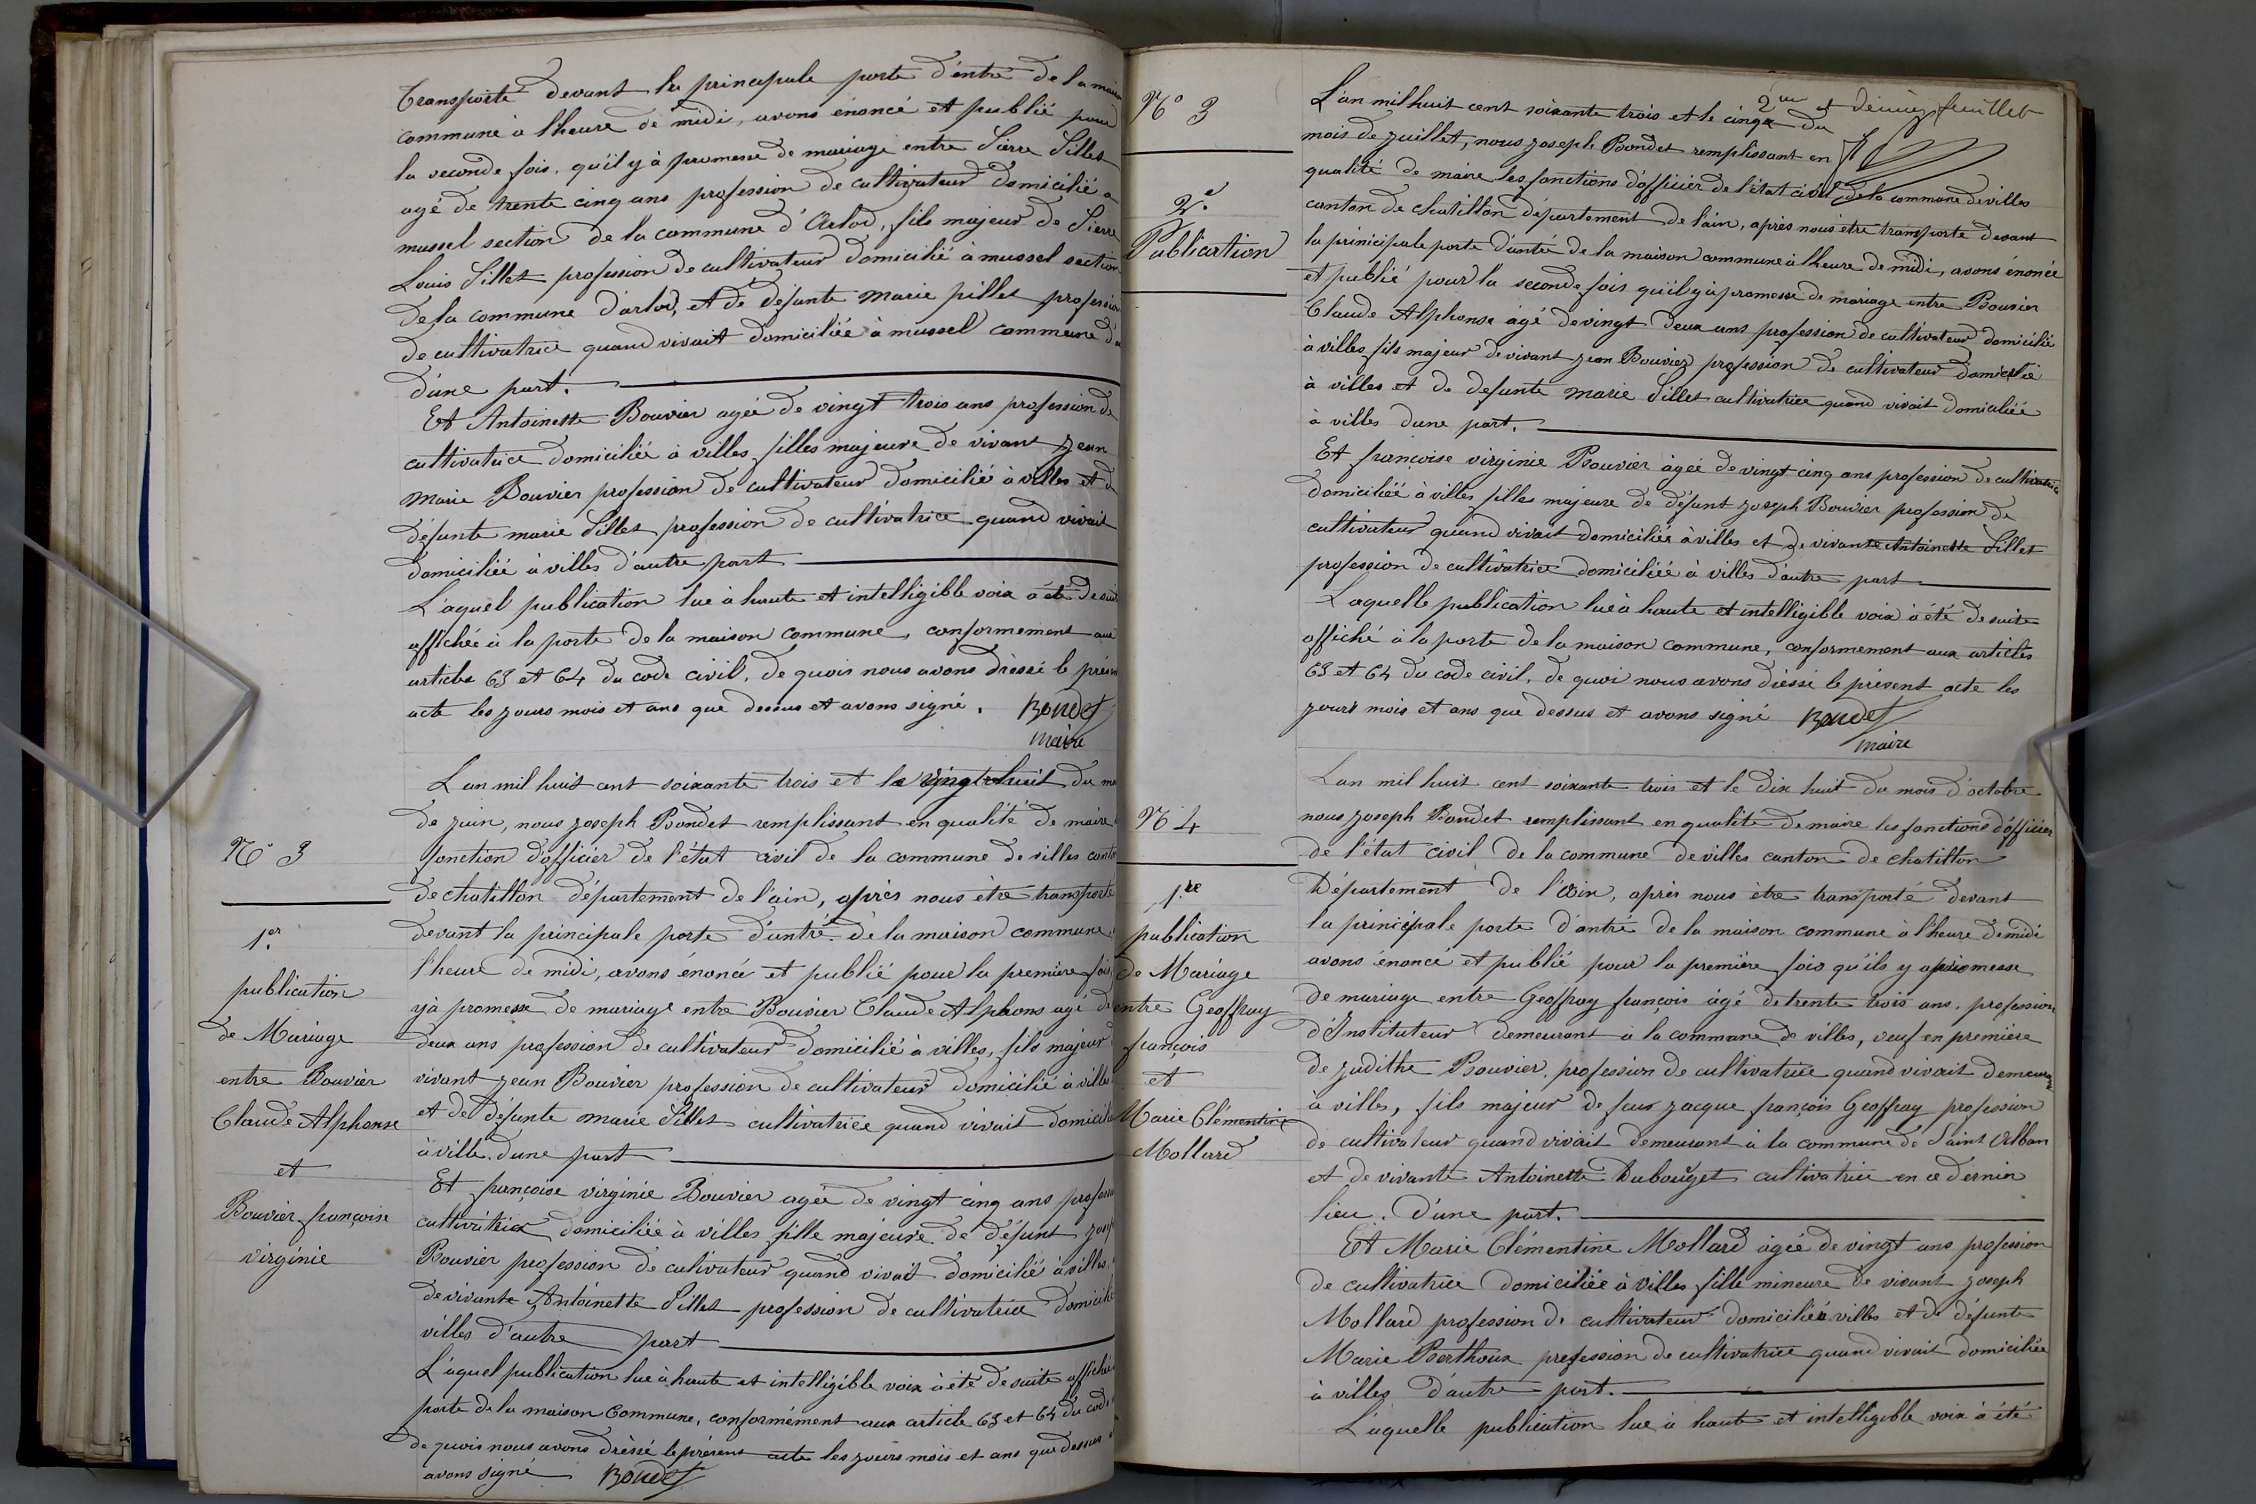 Transporté devant la principale porte d'entré de la maison
commune à l'heure de midi, avons énoncé et publié pour
la seconde fois, qu'il y à promesse de mariage entre Pierre Pillet
agé de trente cinq ans profession de cultivateur domicilié a
mussel section de la commune d'Arlod, fils majeur de Pierre
Louis Pillet profession de cultivateur domicilié à mussel section
de la commune d'arlod, et de défunte marie pillet profession
de cultivatrice quand vivait domiciliée à mussel commune d'a
d'une part.
Et Antoinette Bouvier agée de vingt trois ans profession de
cultivatrice domiciliée à villes filles majeure de vivant Jean
Marie Bouvier profession de cultivateur domicilié à villes et d
défunte marie Pillet profession de cultivatrice quand vivait
domiciliée à villes d'autre part
L'aquel publication lue à haute et intelligible voix à été de suit
affichée à la porte de la maison commune, conformement aux
article 63 et 64 du code civil, de quois nous avons dressé le présen
acte les jours mois et ans que dessus et avons signé. Bondet
maire
N° 3
1.er
publication
de Mariage
entre Bouvier
Claude Alphonse
et
Bouvier françoise
virginie
L'an mil huit cent soixante trois et le vingt huit du mo
de juin, nous Joseph Bondet remplissant en qualité de maire
fonction d'officier de l'état civil de la commune de villes canto
de chatillon département de l'ain, après nous être transporté
devant la principale porte d'entré de la maison commune
l'heure de midi, avons énoncé et publié pour la premiere fois
y à promesse de mariage entre Bouvier Claude Alphons agé de
deux ans profession de cultivateur domicilié à villes, fils majeur
vivant Jean Bouvier profession de cultivateur domicilié à villes
et de défunte marie Pillet cultivatrice quand vivait domicili
à ville d'une part
Et françoise virginie Bouvier agée de vingt cinq ans profess
cultivatrice domiciliée à villes fille majeure de défunt Jos
Bouvier profession de cultivateur quand vivait domicilié à villes
de vivante Antoinette Pillet profession de cultivatrice domicili
villes d'autre part
L'aquel publication lue à haute et intelligible voix à été de suite affiché
porte de la maison Commune, conformément aux article 63 et 64 du code
de quois nous avons dréssé le présens acte les jours mois et ans que dessus
avons signé Bondet
2me et dernier feuillet
N° 3
2.e
Publication
L'an mil huit cent soixante trois et le cinqx du
mois de Juillet, nous Joseph Bondet remplissant en
qualité de maire les fonctions d'officier de l'état civil de la commune de villes
canton de chatillon département de l'ain, après nous être transporté devant
la prinicipale porte d'entré de la maison commune à l'heure de midi, avons énoncée
et publié pour la seconde fois qu'il y à promesse de mariage entre Bouvier
Claude Alphonse agé de vingt deux ans profession de cultivateur domiciliée
à villes fils majeur de vivant Jean Bouvier profession de cultivateur domicilié
à villes et de defunte marie Pillet cultivatrice quand vivait domiciliée
à villes d'une part.
Et françoise virginie Bouvier âgée de vingt cinq ans profession de cultivatrice
domiciliée à villes filles majeure de défunt Joseph Bouvier profession de
cultivateur quand vivait domiciliée à villes et de vivante Antoinette Pillet
profession de cultivatrice domiciliée à villes d'autre part
Laquelle publication lue à haute et intelligible voix à été de suite
affiché à la porte de la maison commune, conformement aux articles
63 et 64 du code civil, de quoi nous avons dréssé le présent acte les
jours mois et ans que dessus et avons signé Bondet
maire
N 4
1.re
publication
de Mariage
entre Geoffray
françois
et
Marie Clémentine
Mollard
L'an mil huit cent soixante trois et le dix huit du mois d'octobre
nous Joseph Bondet remplissant en qualité de maire les fonctions d'officier
de l'état civil de la commune de villes canton de chatillon
Département de l'ain, après nous être transporté devant
la prinicipale porte d'antré de la maison commune à l'heure de midi
avons énoncé et publié pour la première fois qu'ils y a promesse
de mariage entre Geoffray françois âgé de trente trois ans, profession
d'Instituteur demeurant à la commune de villes, veuf en première
de Judithe Bouvier, profession de cultivatrice quand vivait demeurant
à villes, fils majeur de feux Jacque françois Geoffray profession
de cultivateur quand vivait demeurant à la commune de Saint Alban
et de vivante Antoinette Dubouget cultivatrice en ce dernier
lieu. d'une part.
Et Marie Clémentine Mollard âgée de vingt ans profession
de cultivatrice domiciliée à villes fille mineure de vivant Joseph
Mollard profession de cultivateur domiciliéà villes et de défunte
Marie Berthoux profession de cultivatrice quand vivait domiciliée
à villes d'autre part.
L'aquelle publication lue à haute et intelligible voix à été